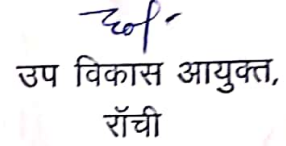 उप विकास आयुक्त,
रॉची